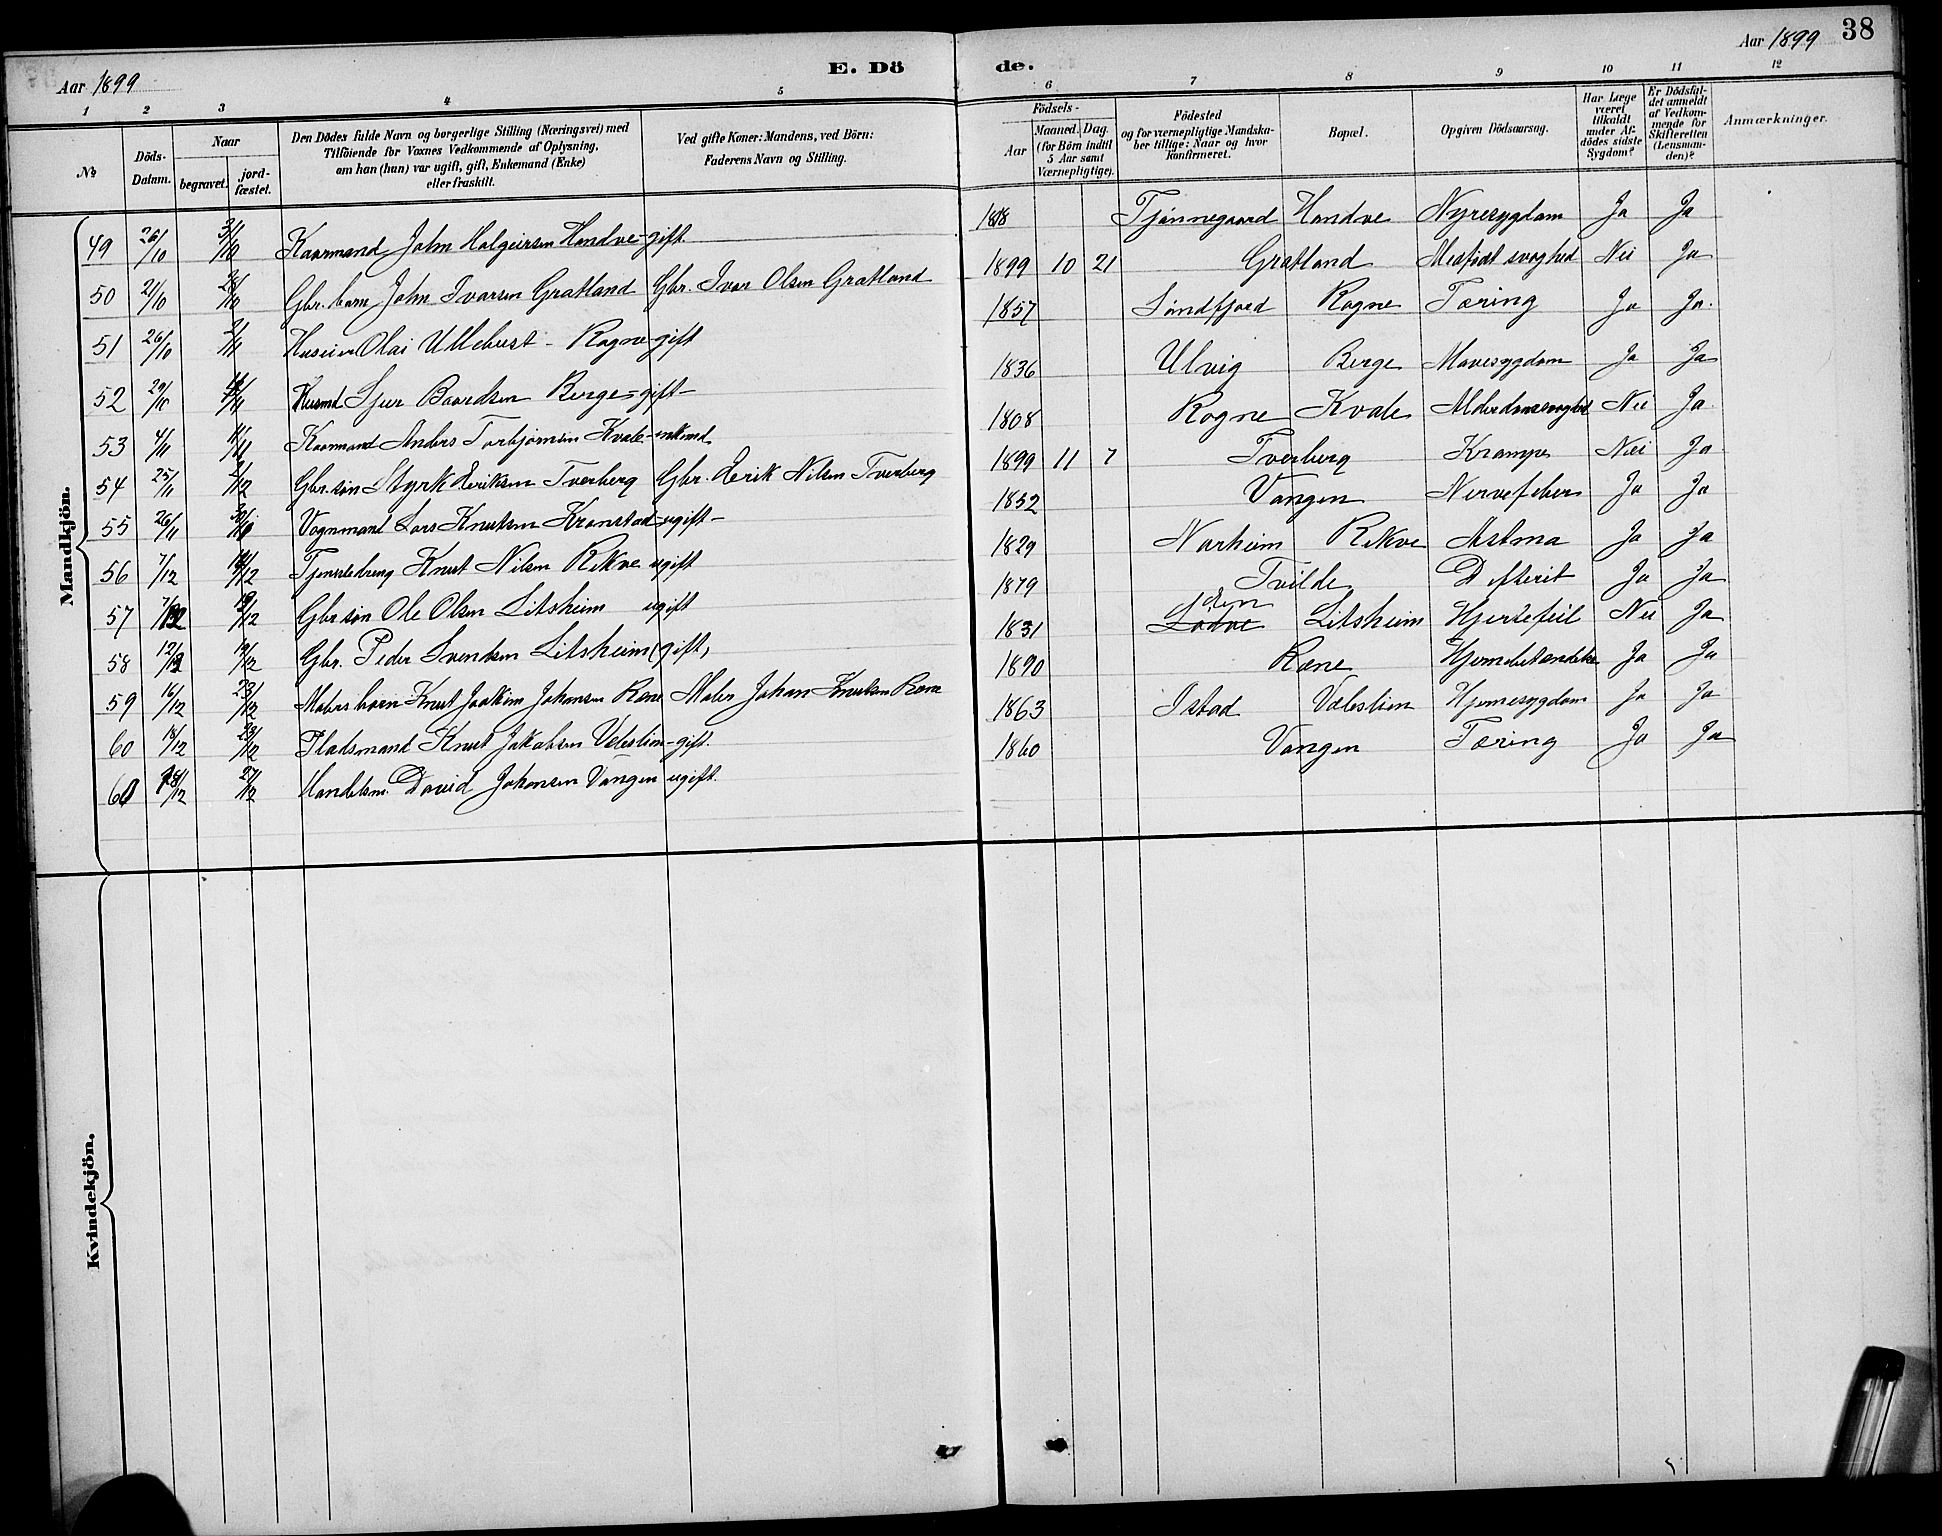 Aar 1899
E. Dö
de.
Aar 1899
38
1 2 3 4 5 6 7 8 9 10 11 12
No
Döds-Datum.
Naar
begravet.
jordfæstet.
Den Dödes fulde Navn og borgerlige Stilling (Næringsvei) med
Tilföiende for Voxnes Vedkommende af Oplysning,
om han (hun) var ugift, gift, Enkemand (Enke)
eller fraskilt.
Ved gifte Koner: Mandens, ved Börn:
Faderens Navn og Stilling.
Födsels-
Aar
Maaned. Dag.
(for Börn indtil
5 Aar samt
Værnepligtige).
Födested
og for værnepligtige Mandska-
ber tillige: Naar og hvor
konfirmeret.
Bopæl.
Opgiven Dödsaarsag.
Har Læge
været
tilkaldt
under Af-
dödes sidste
Sygdom?
Er Dödsfal-
det anmeldt
af Vedkom-
mende for
Skifteretten
(Lensman-
den)?
Anmærkninger.
Mandkjön.
49 26/10 3/10 Kaarmand John Holgeirsen Handve - gift 1818 Tjönnegaard Handve Nyresygdom Ja Ja
50 21/10 28/10 Gbr. barn John Ivarsen Gratland Gbr. Ivar Olsen Gratland 1899 10 21 Gratland Medfödt svaghed Nei Ja
51 26/10 2/11 Olai Ullebust - Rogne - gift 1857 Söndfjord Rogne Tæring Ja Ja
52 29/10 Husmd Sjur Baardsen Berge - gift - 1836 Ulvig Berge Mavesygdom Ja Ja
53 4/11 11/11 Kaarmand Anders Torbjörnsen Kvale - enkemd. 1808 Rogne Kvale Alderdomssvaghed Nei Ja
54 25/11 2/12 Gbr. sön Styrk Eriksen Tverberg Gbr. Erik Nilsen Tverberg 1899 11 7 Tverberg Krampe Nei Ja
55 26/11 Vognmand Lars Knutsen Kronstad - ugift - 1852 Vangen Nervefeber Ja Ja
56 7/12 Tjenestedreng Knut Nilsen Rekve ugift 1829 Norheim Rekve Astma Ja Ja
57 7/12 Gbr sön Ole Olsen Litsheim ugift 1879 Tvilde Difterit Ja Ja
58 12/12 19/12 Gbr. Peder Svendsen Litsheim (gift) 1831 Litsheim Hjertefeil Nei Ja
59 16/12 23/12 Malers barn Knut Joakim Johansen Rene Maler Johan Knutsen Rene 1890 Rene Hjernebetændelse Ja Ja
60 18/12 23/12 Pladsmand Knut Jakobsen Velestien - gift. 1863 Istad Vælestien Hjernesygdom Ja Ja
61 18/12 27/12 Handelsm. David Johansen Vangen ugift. 1860 Vangen Tæring Ja Ja
Kvindekjön.